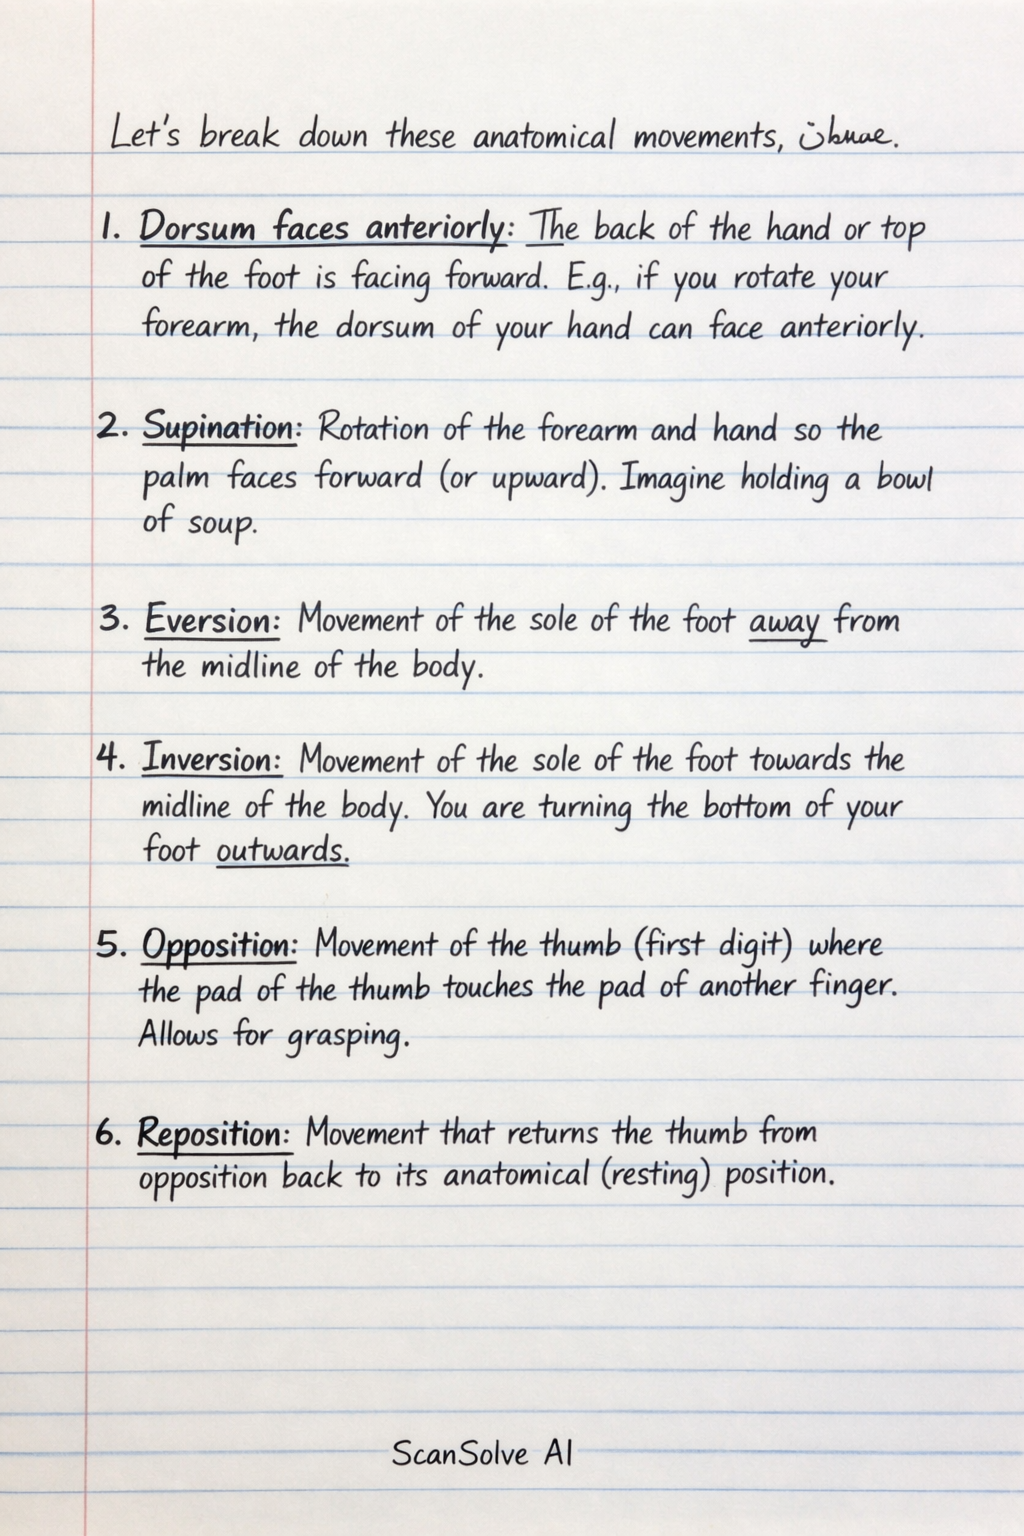 Let's break down these anatomical movements,
1. Dorsum faces anteriorly: The back of the hand or top
of the foot is facing forward. E.g., if you rotate your
forearm, the dorsum of your hand can face anteriorly.
2. Supination: Rotation of the forearm and hand so the
palm faces forward (or upward). Imagine holding a bowl
of soup.
3. Eversion: Movement of the sole of the foot away from
the midline of the body.
4. Inversion: Movement of the sole of the foot towards the
midline of the body. You are turning the bottom of your
foot outwards.
5. Opposition: Movement of the thumb (first digit) where
the pad of the thumb touches the pad of another finger.
Allows for grasping.
6. Reposition: Movement that returns the thumb from
opposition back to its anatomical (resting) position.
ScanSolve AI